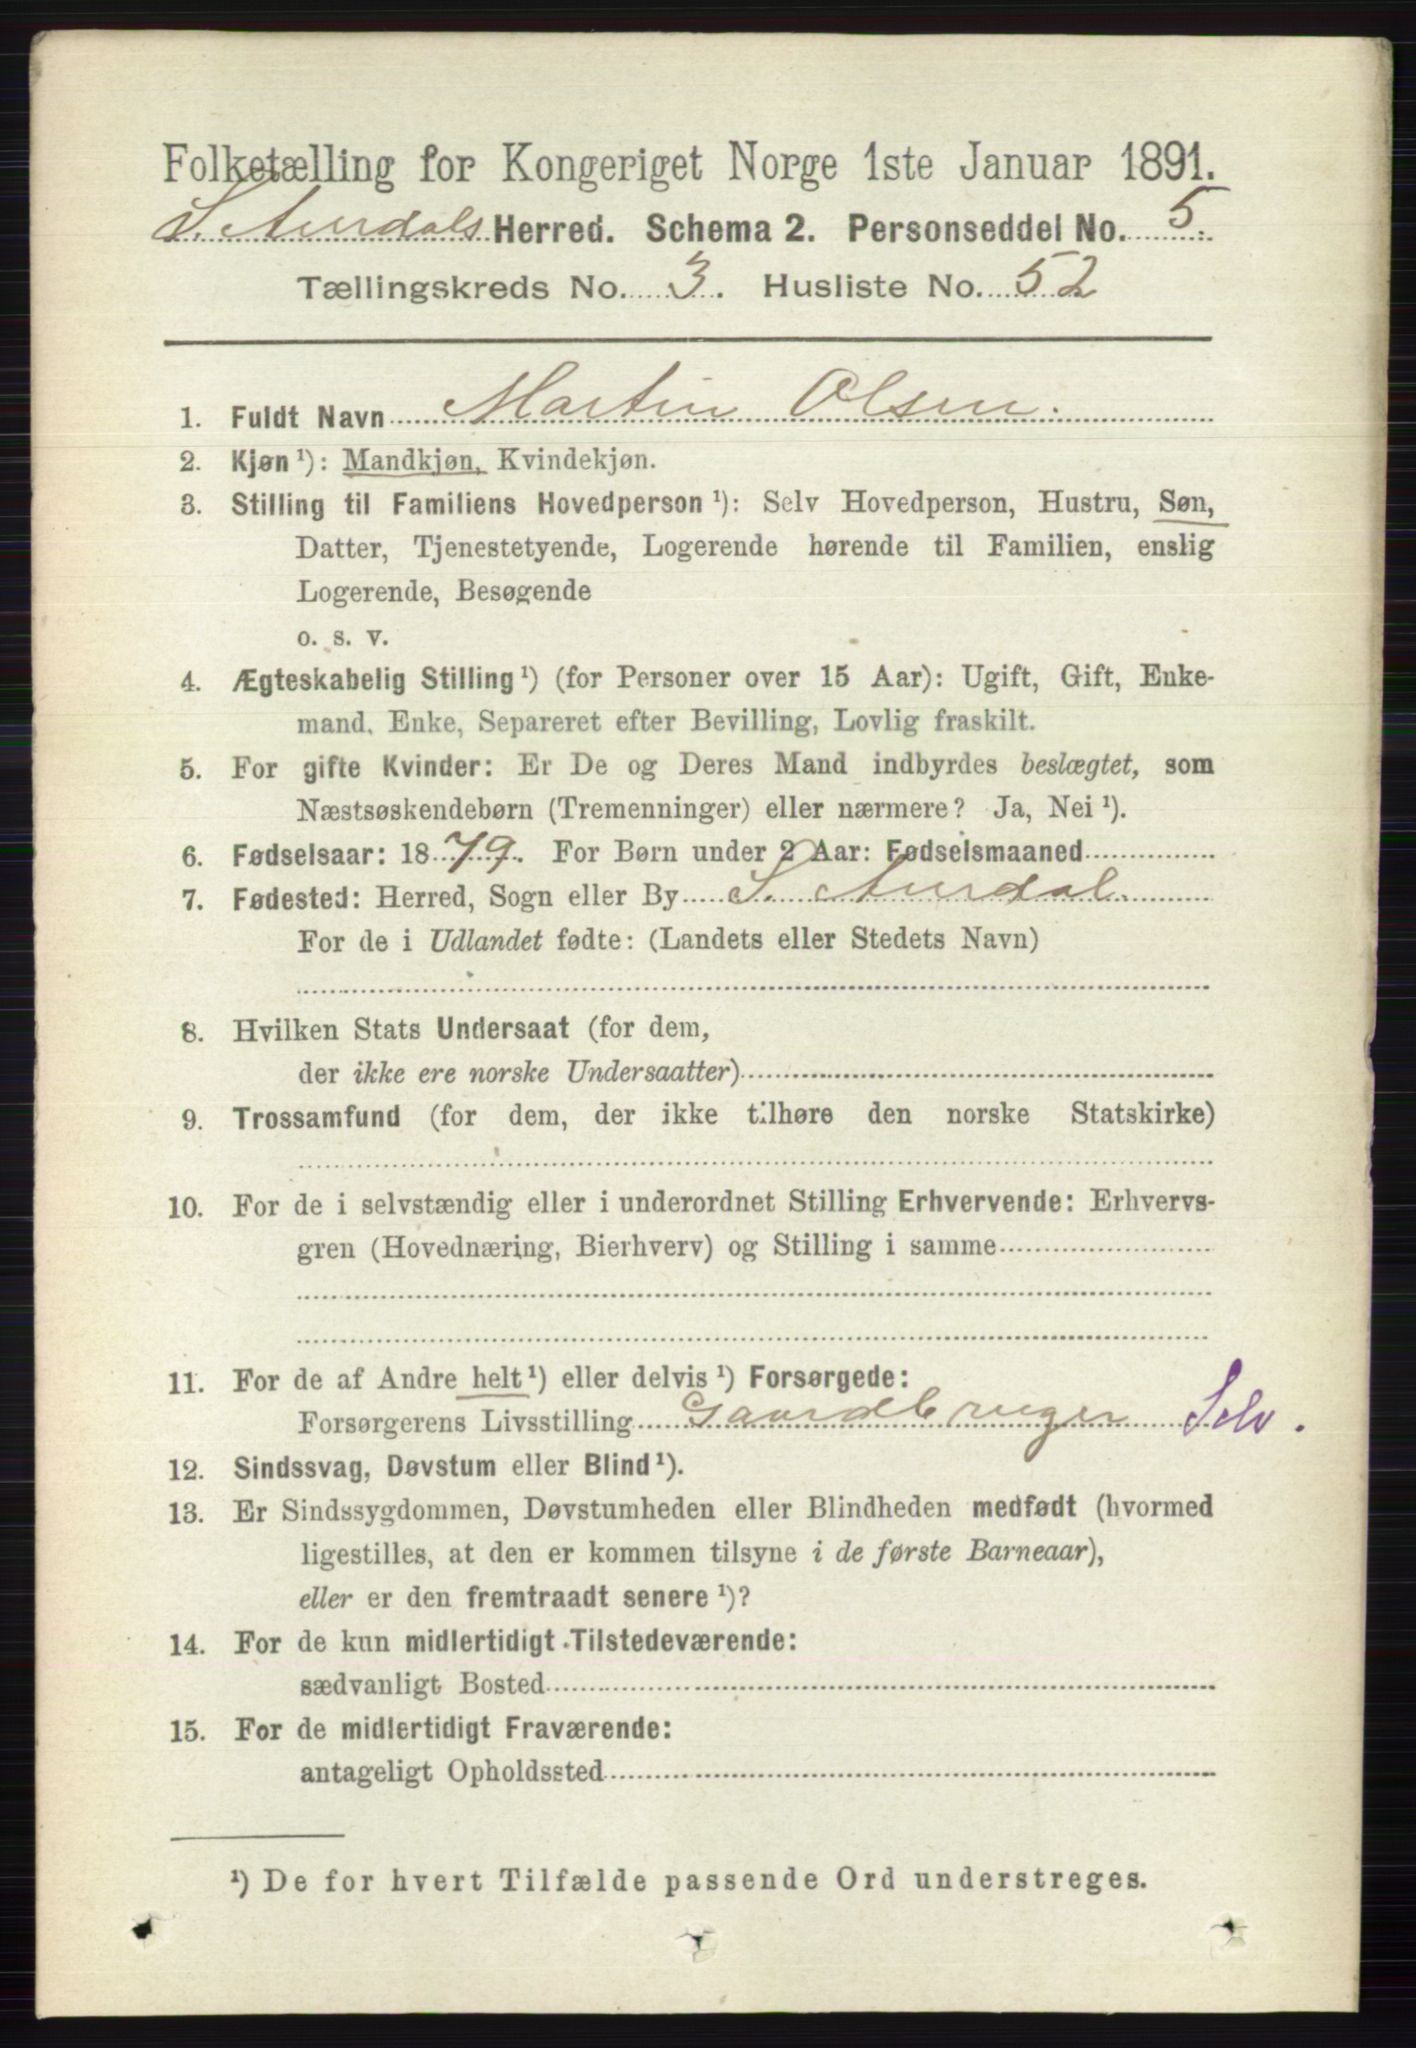 Folketælling for Kongeriget Norge 1ste Januar 1891.
S. Aurdals Herred. Schema 2. Personseddel No. 5.
Tællingskreds No. 3. Husliste No. 52
1. Fuldt Navn Martin Olsen.
2. Kjøn ¹): Mandkjøn, Kvindekjøn.
3. Stilling til Familiens Hovedperson ¹): Selv Hovedperson, Hustru, Søn,
Datter, Tjenestetyende, Logerende hørende til Familien, enslig
Logerende, Besøgende
o. s. v.
4. Ægteskabelig Stilling ¹) (for Personer over 15 Aar): Ugift, Gift, Enke-
mand, Enke, Separeret efter Bevilling, Lovlig fraskilt.
5. For gifte Kvinder: Er De og Deres Mand indbyrdes beslægtet, som
Næstsøskendebørn (Tremenninger) eller nærmere? Ja, Nei ¹).
6. Fødselsaar: 1879. For Børn under 2 Aar: Fødselsmaaned
7. Fødested: Herred, Sogn eller By S. Aurdal.
For de i Udlandet fødte: (Landets eller Stedets Navn)
8. Hvilken Stats Undersaat (for dem,
der ikke ere norske Undersaatter)
9. Trossamfund (for dem, der ikke tilhøre den norske Statskirke)
10. For de i selvstændig eller i underordnet Stilling Erhvervende: Erhvervs-
gren (Hovednæring, Bierhverv) og Stilling i samme
11. For de af Andre helt ¹) eller delvis ¹) Forsørgede:
Forsørgerens Livsstilling Gaardbruger Selv.
12. Sindssvag, Døvstum eller Blind ¹).
13. Er Sindssygdommen, Døvstumheden eller Blindheden medfødt (hvormed
ligestilles, at den er kommen tilsyne i de første Barneaar),
eller er den fremtraadt senere ¹)?
14. For de kun midlertidigt Tilstedeværende:
sædvanligt Bosted
15. For de midlertidigt Fraværende:
antageligt Opholdssted
¹) De for hvert Tilfælde passende Ord understreges.